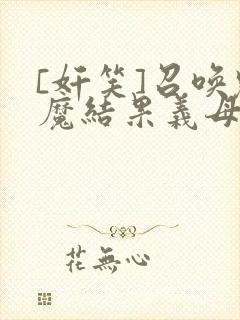 [奸笑]召喚
魔結果義母
花無心